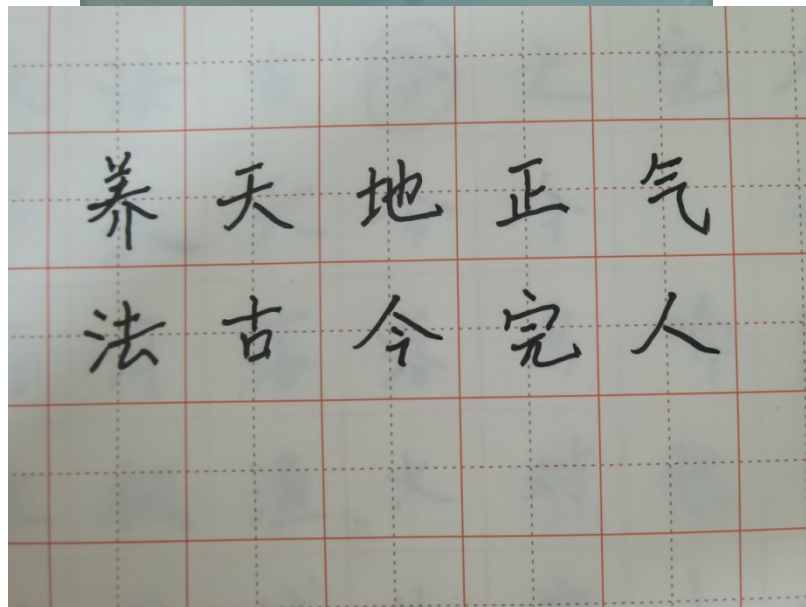 养天地正气
法古今完人